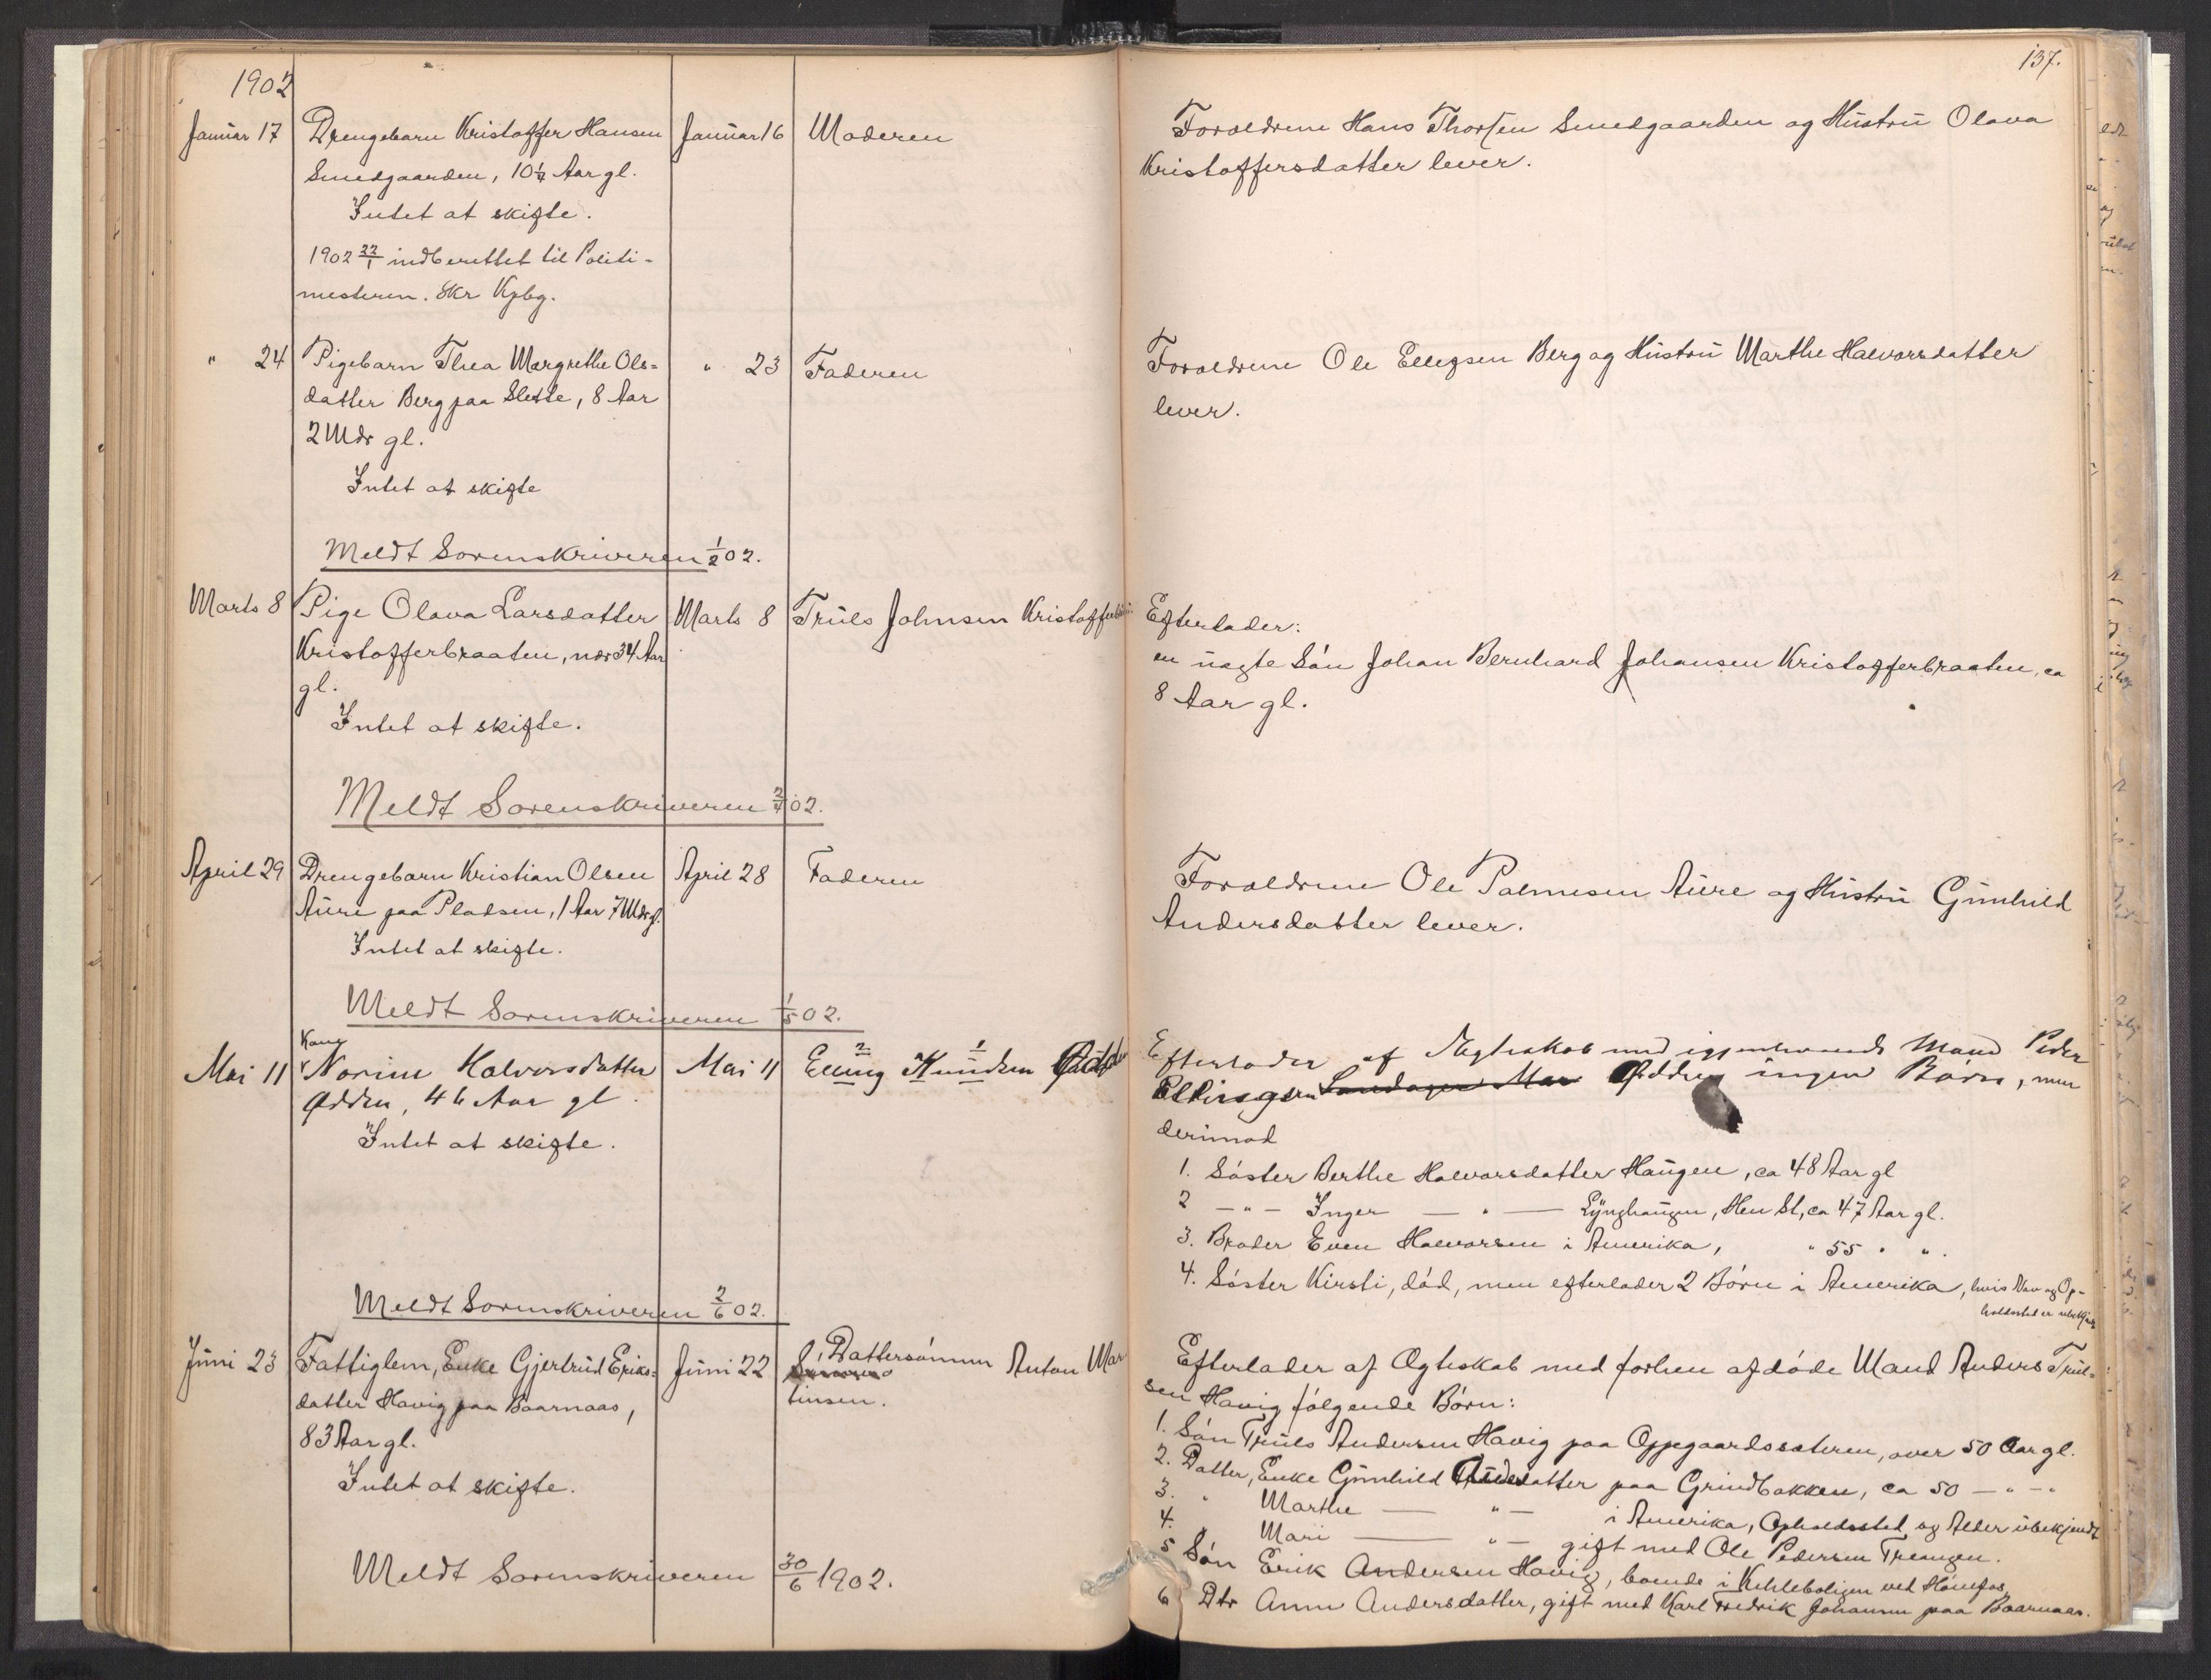 1902
137.
Januar 17 Drengebarn Kristoffer Hansen Januar 16 Moderen
Smedgaarden, 10 1/4 Aar gl.
Intet at skifte.
1902 22/1 indberettet til Politi-
mesteren. Skr Kpbg.
Forældrene Hans Thorsen Smedgaarden og Hustru Olava
Kristoffersdatter lever.
" 24 Pigebarn Thea Margrethe Ols- " 23 Faderen
datter Berg paa Slette, 8 Aar
2 Mdr gl.
Intet at skifte
Forældrene Ole Ellegsen Berg og Hustru Marthe Halvorsdatter
lever.
Meldt Sorenskriveren 1/2 02.
Marts 8 Pige Olava Larsdatter Marts 8 Truls Johnsen
Kristofferbraaten, nær 34 Aar
gl.
Intet at skifte.
Efterlader:
en uægte Søn Johan Bernhard Johansen Kristofferbraaten, ca
8 Aar gl.
Meldt Sorenskriveren 2/4 02.
April 29 Drengebarn Kristian Olsen April 28 Faderen
Aure paa Pladsen, 1 Aar 7 Mdr gl.
Intet at skifte.
Forældrene Ole Palmesen Aure og Hustru Gunhild
Andersdatter lever.
Meldt Sorenskriveren 1/5 02.
Kone
Mai 11 Norine Halvorsdatter Mai 11 Elling Knudsen
Ødden, 46 Aar gl.
Intet at skifte.
Efterlader af Ægteskab med igjenlevende Mand Peder
Ellingsen Ødden ingen Børn, men
derimod
1. Søster Berthe Halvorsdatter Haugen, ca 48 Aar gl
2 — " — Inger — " — Lynghaugen, Hen St, ca 47 Aar gl.
3. Broder Even Halvorsen i Amerika, " 55 " ".
4. Søster Kirsti, død, men efterlader 2 Børn i Amerika, hvis Navn og Op-
holdssted er ubekjendt
Meldt Sorenskriveren 2/6 02.
Juni 23 Fattiglem, Enke Gjertrud Eriks- Juni 22 Dattersønnen Anton Mar
datter Havig paa Baarnaas, tinsen.
83 Aar gl.
Intet at skifte.
Efterlader af Ægteskab med forhen afdøde Mand Anders Trul-
sen Havig følgende Børn:
1. Søn Truls Andersen Havig paa Oppegaardssæteren, over 50 Aar gl.
2. Datter, Enke Gunhild Andersdatter paa Grindbakken, ca 50 — " — "
3. " Marthe — " — i Amerika, Opholdssted og Alder ubekjendt
4. " Mari — " — gift med Ole Pedersen Treangen.
5 Søn Erik Andersen Havig, boende i ved Hønefos,
6 Dtr Anne Andersdatter, gift med Karl Fredrik Johannsen paa Baarnaas.
Meldt Sorenskriveren 30/6 1902.